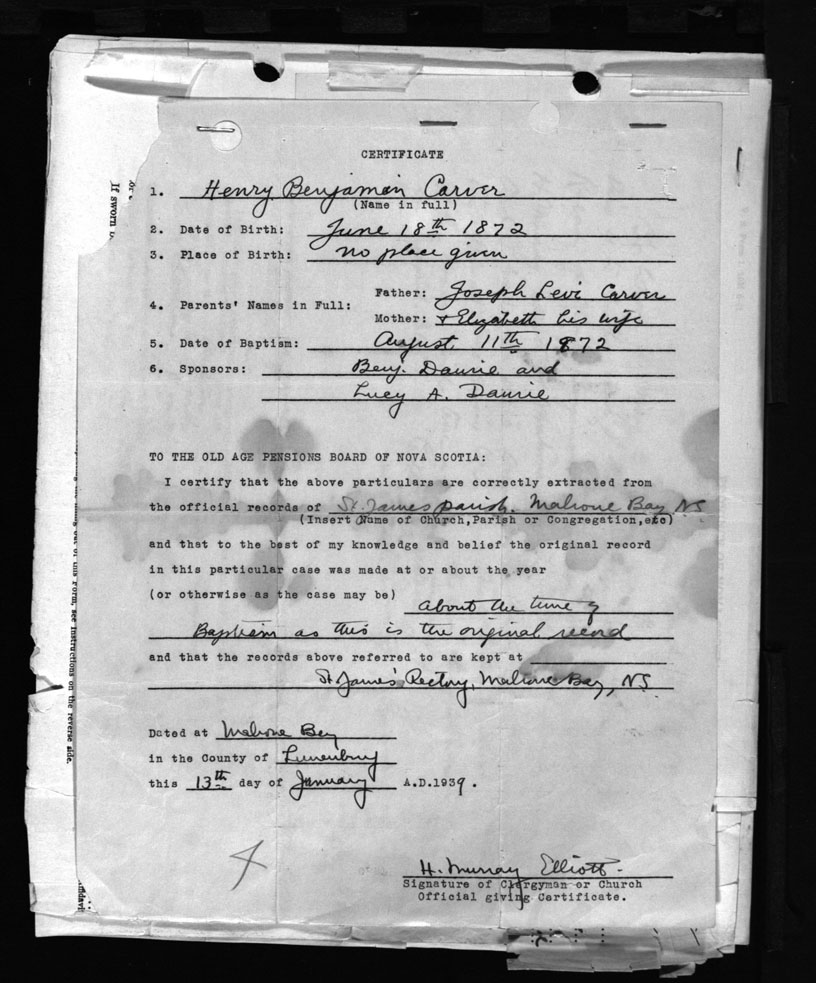 CERTIFICATE
1. Henry Benjamin Carver
(Name in full)
2. Date of Birth: June 18th 1872
3. Place of Birth: no place given
4. Parents' Names in Full: Father: Joseph Levi Carver
Mother: & Elizabeth his wife
5. Date of Baptism: August 11th 1872
6. Sponsors: Benj. Daurie and
Lucy A. Daurie
TO THE OLD AGE PENSIONS BOARD OF NOVA SCOTIA:
I certify that the above particulars are correctly extracted from
the official records of St. James parish. Mahone Bay, NS
(Insert Name of Church,Parish or Congregation,etc)
and that to the best of my knowledge and belief the original record
in this particular case was made at or about the year
(or otherwise as the case may be) about the time of
Baptism as this is the original record
and that the records above referred to are kept at
St James' Rectory, Mahone Bay, NS.
Dated at Mahone Bay
in the County of Lunenburg
this 13th day of January A.D.1939.
H. Murray Elliott.
Signature of Clergyman or Church
Official giving Certificate.
If sworn
of this Form, see Instructions on the reverse side.